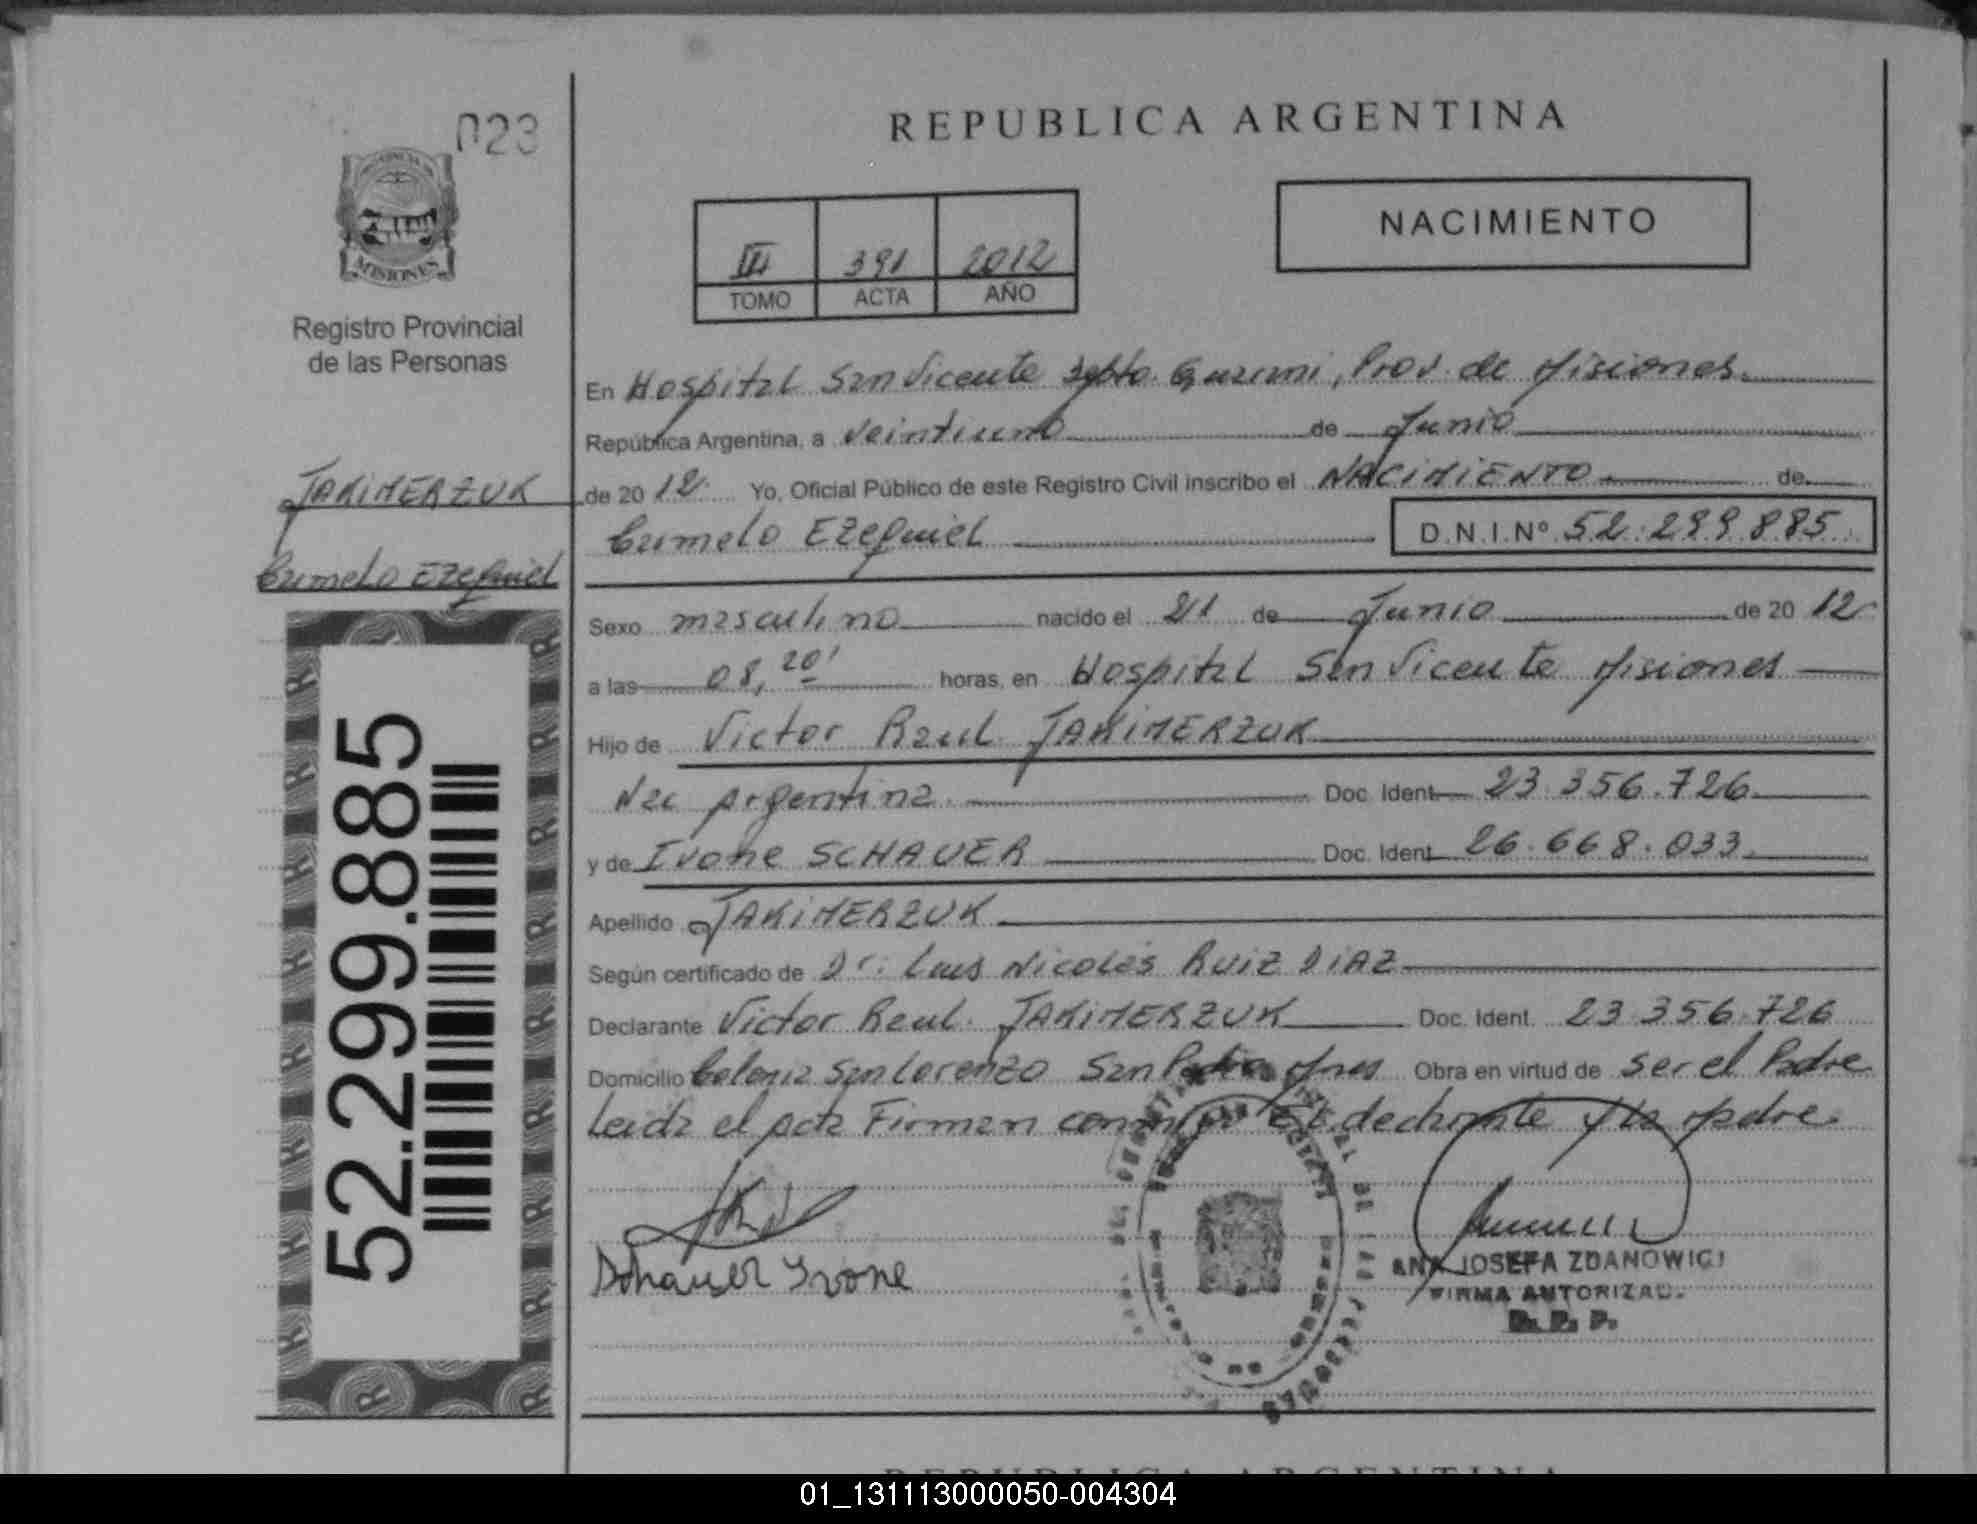 023
REPUBLICA ARGENTINA
NACIMIENTO
III 391 2012
TOMO ACTA AÑO
MISIONES
Registro Provincial
de las Personas
En Hospital San Vicente Dpto. Guarani, Prov. de Misiones.
República Argentina, a veintiuno de Junio
JAKIMERZUK
de 2012. Yo, Oficial Público de este Registro Civil inscribo el NACIMIENTO de
Carmelo Ezequiel D.N.I.Nº 52.299.885
Carmelo Ezequiel
Sexo masculino nacido el 21 de Junio de 2012
a las 08,20' horas, en Hospital San Vicente Misiones
Hijo de Victor Raul JAKIMERZUK
Nac Argentina Doc. Ident 23.356.726
y de Ivone SCHAUER Doc. Ident 26.668.033
Apellido JAKIMERZUK
Según certificado de Dr: Luis Nicolás Ruiz DIAZ
Declarante Victor Raul JAKIMERZUK Doc. Ident. 23.356.726
Domicilio Colonia San Lorenzo San Pedro Mnes Obra en virtud de ser el Padre
Leida el acta Firman conmigo El declarante y la Madre.
52.299.885
Schauer Ivone
ANA JOSEFA ZDANOWICZ
FIRMA AUTORIZAD.
R. P. P.
REPUBLICA ARGENTINA
01_131113000050-004304